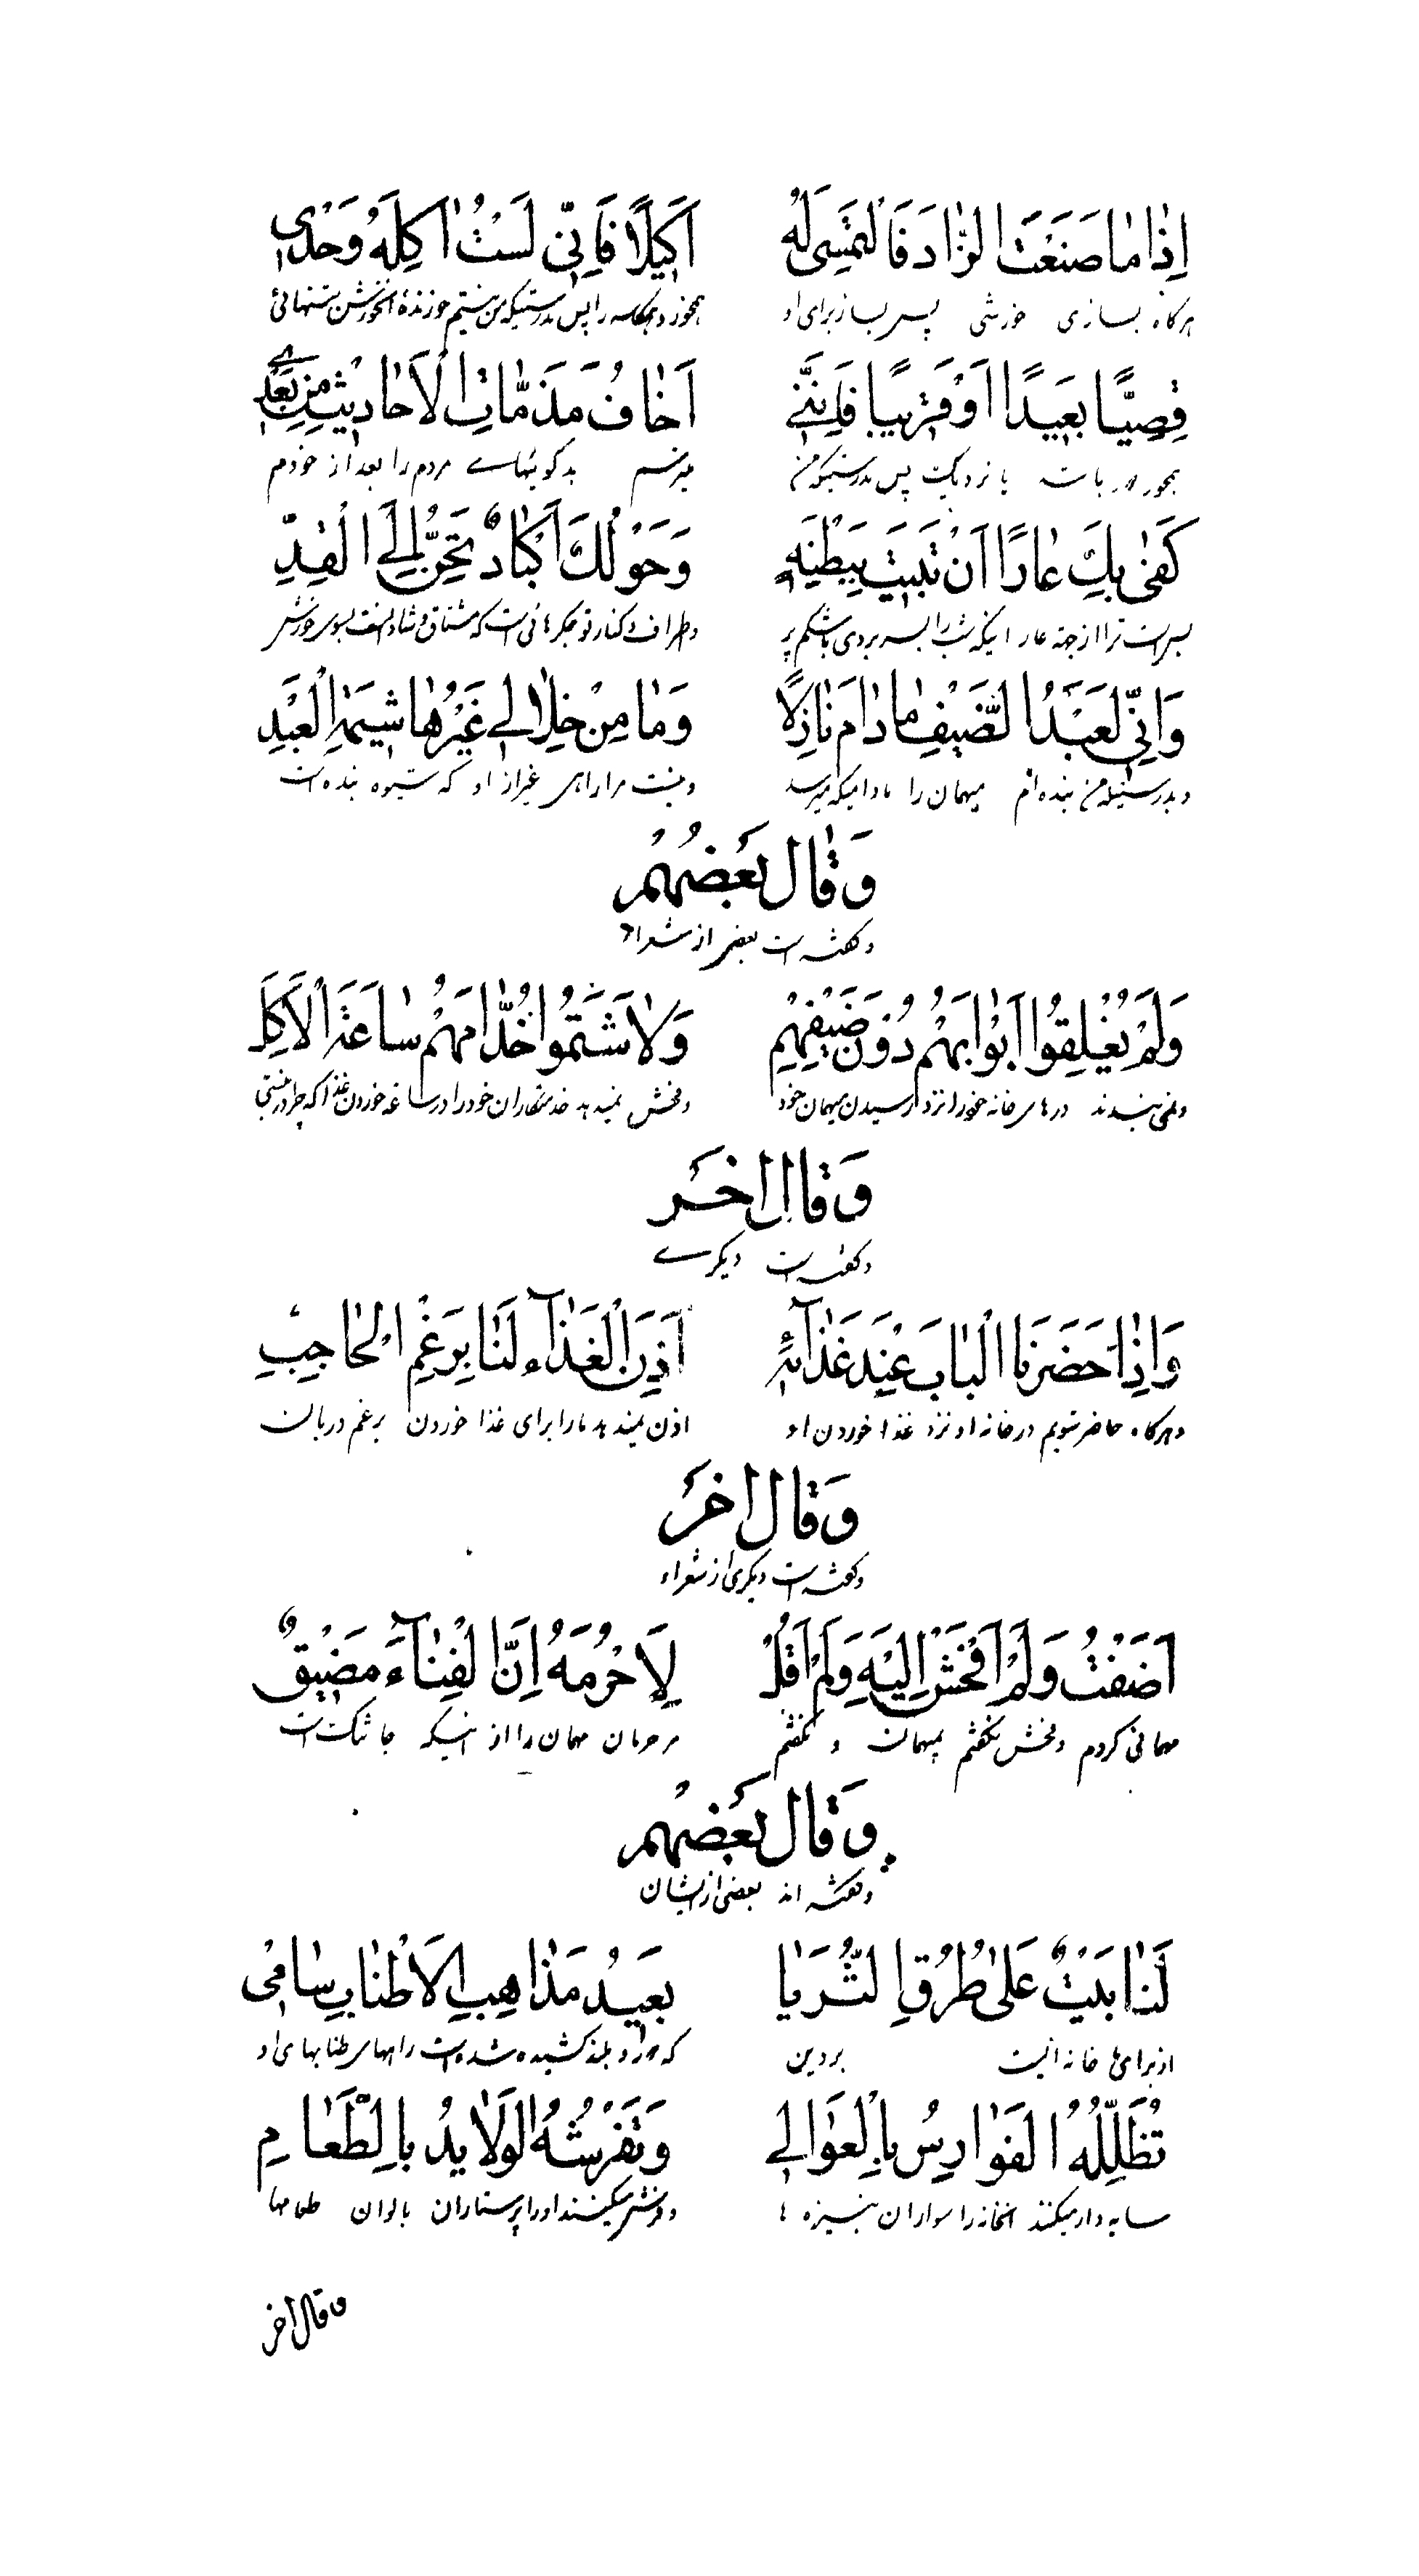 اِذٰا مٰا صَنَعْتَ الزّٰادَ فَالْتَمِسِی لَهُ اَکیٖلًا فَاِنّیٖ لَسْتُ اٰکِلَهُ وَحْدیٖ
هرکاه بسازی خورشی پس بساز برای او همخوره و همکاسه را پس بدرستیکه من نیستم خورنده آنخورش بتنهائی
قِصِیًّا بَعیٖدًا اَوْ قَریٖبًا فَاِنَّنیٖ اَخٰافُ مَذَمّٰاتِ الْاَحٰادیٖثِ مِنْ بَعْدیٖ
یا نزدیک پس بدرستیکه من میترسم بدکوئیهاے مردم را بعد از خودم
کَفٰی بِكَ عٰارًا اَنْ تَبیٖتَ بِبِطْنِهٍ وَحَوْلَكَ اَکْبٰادٌ تَحِنُّ اِلَے الْقِدِّ
بس است ترا از جهة عار اینکه شب را بسر بردی با شکم پر و اطراف و کنار تو جکرهائی است که مشتاق و شاد بسوی خورش
وَاِنّیٖ لَعَبْدُ الضَّیْفِ مٰا دٰامَ نٰازِلًا وَمٰا مِنْ خِلٰالیٖ غَیْرُهٰا شیٖمَةُ الْعَبْدِ
و بدرستیکه من بنده‌ام میهمان را مادامیکه میرسد و نیست مرا راهی غیر از او که شیوه بنده است
وَقٰالَ بَعْضُهُمْ
و کفته است بعضی از شعراء
وَلَمْ یُغْلِقُوا اَبْوٰابَهُمْ دُوْنَ ضَیْفِهِمِ وَلٰا شَتَمُوا خُدّٰامَهُمْ سٰاعَةَ الْاَکْلِ
و نمی بندند درهای خانه خود را نزد رسیدن میهمان خود و فحش نمیدهد خدمتکاران خود را در ساعة خوردن غذا که
وَقٰالَ اخَرُ
و کفته است دیکرے
وَاِذٰا حَضَرْنَا الْبٰابَ عِنْدَ غَذٰآئِهٖ اَذِنَ الْغَذٰآءُ لَنٰا بِرَغْمِ الْحٰاجِبِ
و هرکاه حاضر شویم در خانه او نزد غذا خوردن او اذن میدهد ما را برای غذا خوردن برغم دربان
وَقٰالَ اخَرُ
و کفته است دیکری از شعراء
اَضَفْتُ وَلَمْ اَفْحَشْ اِلَیْهِ وَلَمْ اَقُلْ لِاَحْرُمَهُ اِنَّ الْفِنٰآءَ مَضیٖقٌ
مهمانی کردم و فحش نکفتم بمیهمان و نکفتم مر حرمان مهمان را از اینکه جا تنک است
وَقٰالَ بَعْضُهُمْ
و کفته اند بعضی از ایشان
لَنٰا بَیْتٌ عَلٰی طُرُقِ الثُّرَیٰا بَعیٖدُ مَذٰاهِبِ الْاَطْنٰابِ سٰامیٖ
از برای ما خانه ایست بر دین که دور و بلند کشیده شده است راههای طنابهای او
تُظَلِّلُهُ الْفَوٰارِسُ بِالْعَوٰالیٖ وَتَفْرِشُهُ الْوَلٰایِدُ بِالطَّعٰامِ
سایه دار میکنند آنخانه را سواران بنیزه ها و فرش میکنند او را پرستاران بالوان طعامها
وقال اخر